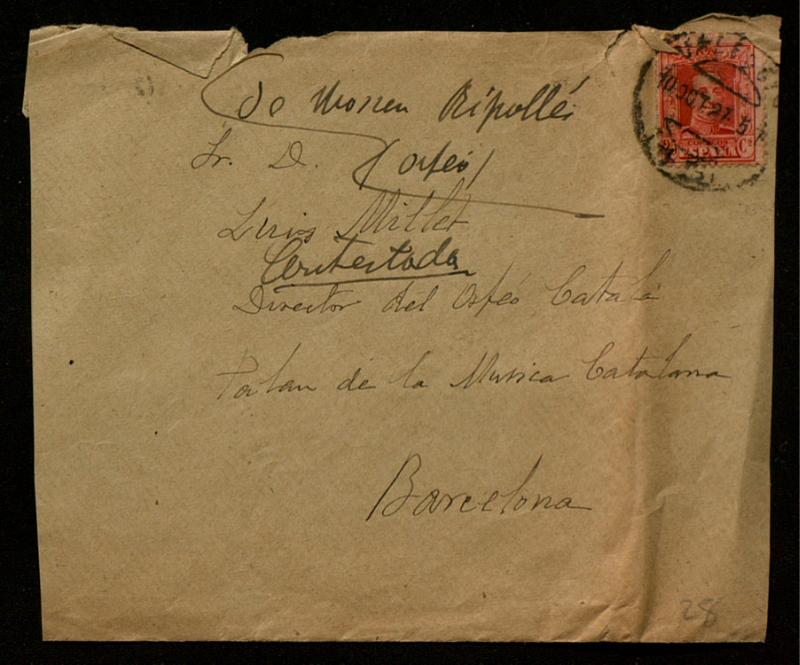 de Mossen Ripollés
Sr. D. (orfeó)
Luis Millet
Contestada
Director del Orfeó Catalá
Palau de la Musica Catalana
Barcelona
28
10 OCT 27 5T
CORREOS
ESPAÑA
25 Cs